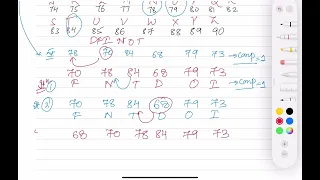 74 75 76 77 78 79 80 81 82
S T U V W X Y Z
83 84 85 86 87 88 89 90
NOT
78 70 84 68 79 73 → comp=1
70 78 84 68 79 73
F N T D O I → comp=1
2 70 78 84 68 79 73
F N T D O I
68 70 78 84 79 73